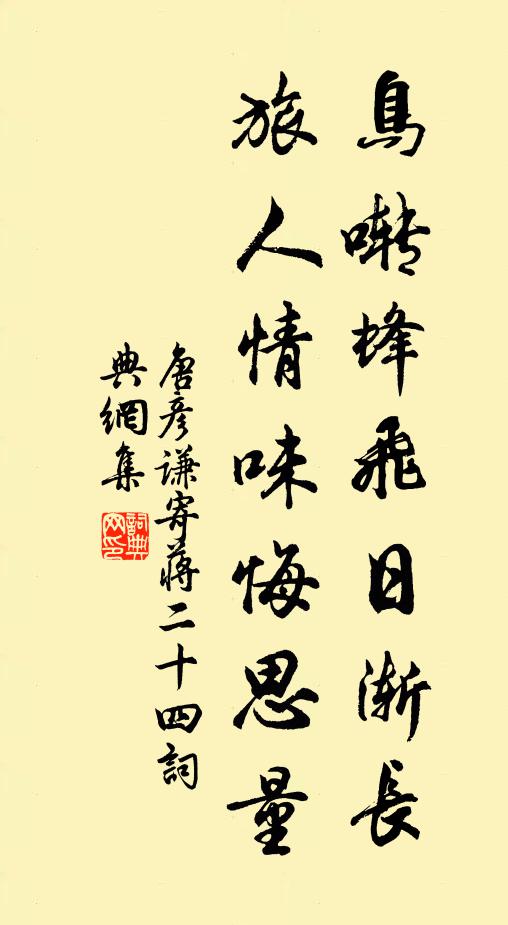 鳥囀蜂飛日漸長
旅人情味悔思量
唐彥謙寄蔣二十四詞
典網集
詞典
网印